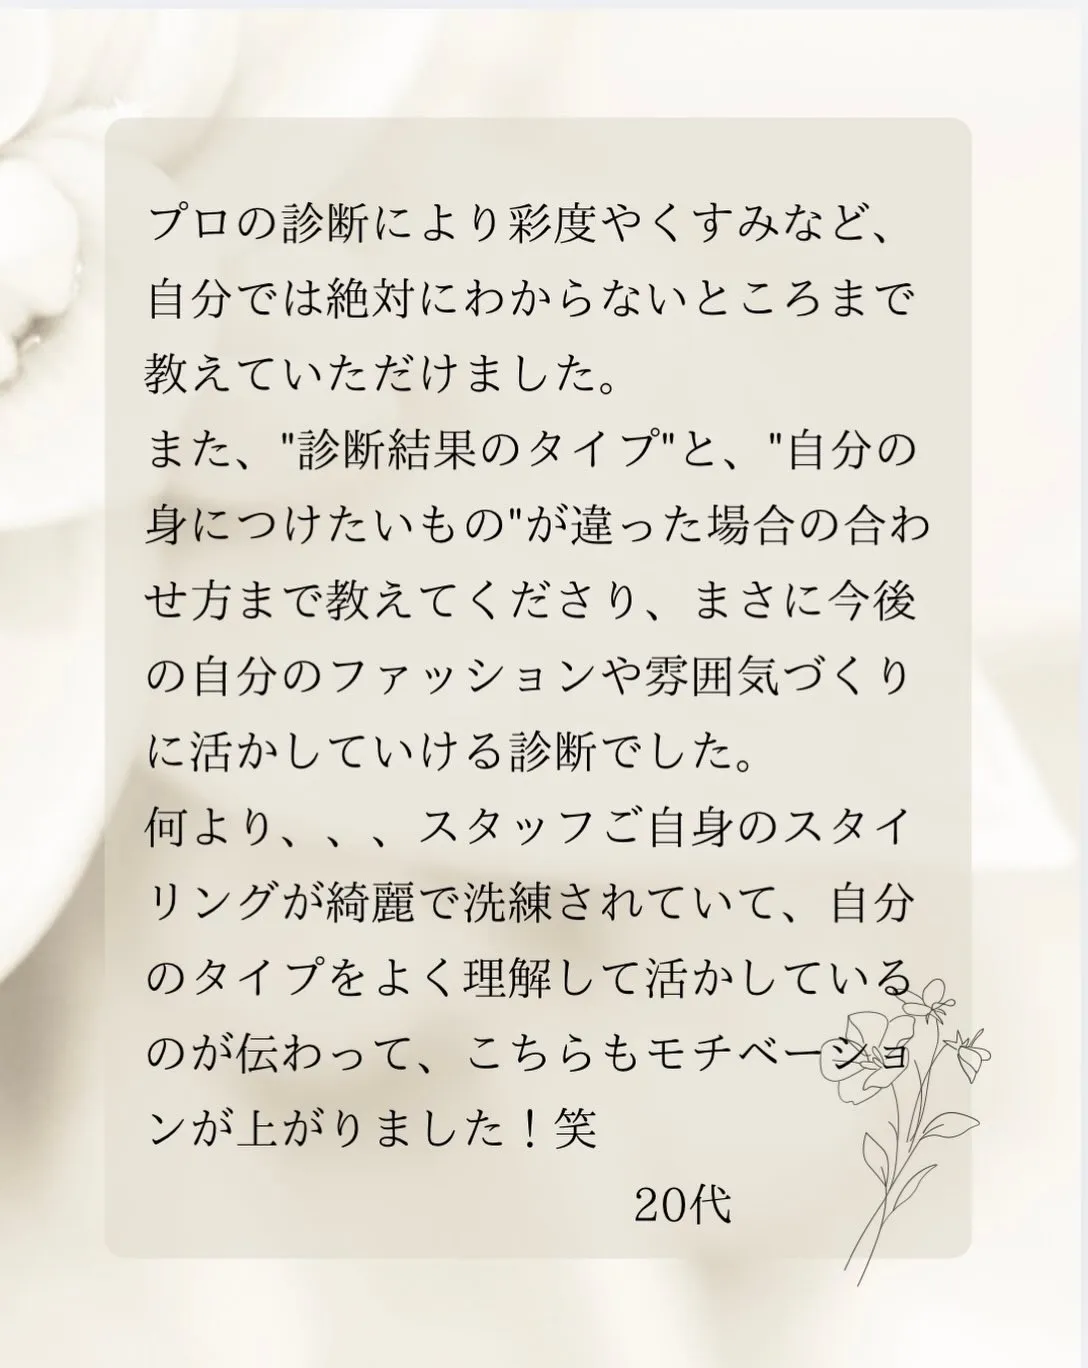 プロの診断により彩度やくすみなど、
自分では絶対にわからないところまで
教えていただけました。
また、"診断結果のタイプ"と、"自分の
身につけたいもの"が違った場合の合わ
せ方まで教えてくださり、まさに今後
の自分のファッションや雰囲気づくり
に活かしていける診断でした。
何より、、、スタッフご自身のスタイ
リングが綺麗で洗練されていて、自分
のタイプをよく理解して活かしている
のが伝わって、こちらもモチベーショ
ンが上がりました！笑
20代